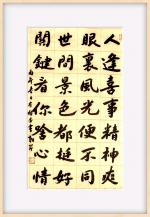 人逢喜事精神爽
眼裏風光便不同
世間景色都挺好
關鍵看你啥心情